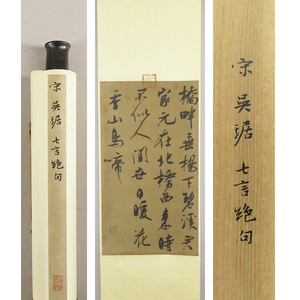 宋 吳琚 七言絶句
橋畔垂楊下碧溪君
家元在北橋西來時
不似人間世日暖花
香山鳥啼
宋 吳琚 七言絶句